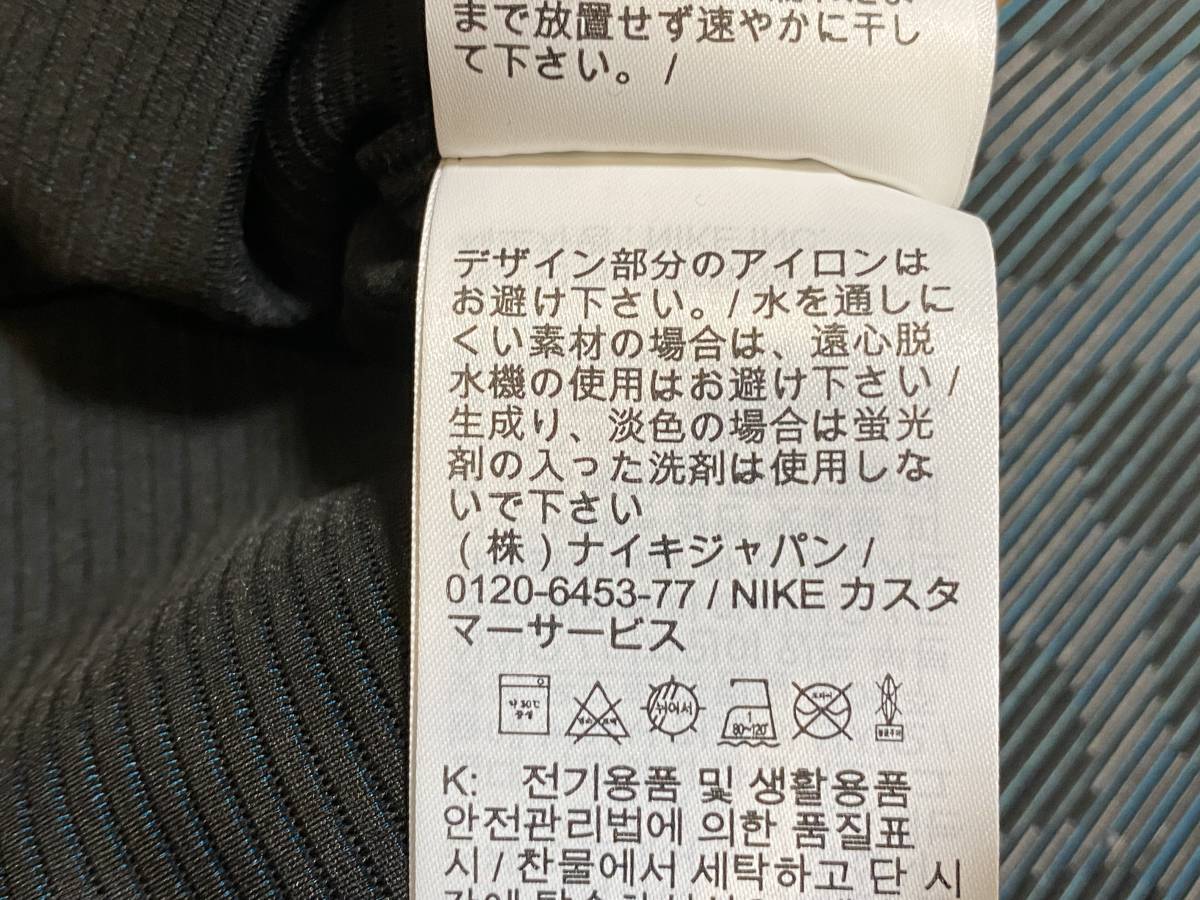 まで放置せず速やかに干し
て下さい。/
デザイン部分のアイロンは
お避け下さい。/ 水を通しに
くい素材の場合は、遠心脱
水機の使用はお避け下さい /
生成り、淡色の場合は蛍光
剤の入った洗剤は使用しな
いで下さい
(株)ナイキジャパン /
0120-6453-77 / NIKE カスタ
マーサービス
약 30℃
중성
뉘어서
1
80~120℃
드라이
K: 전기용품 및 생활용품
안전관리법에 의한 품질표
시 / 찬물에서 세탁하고 단 시